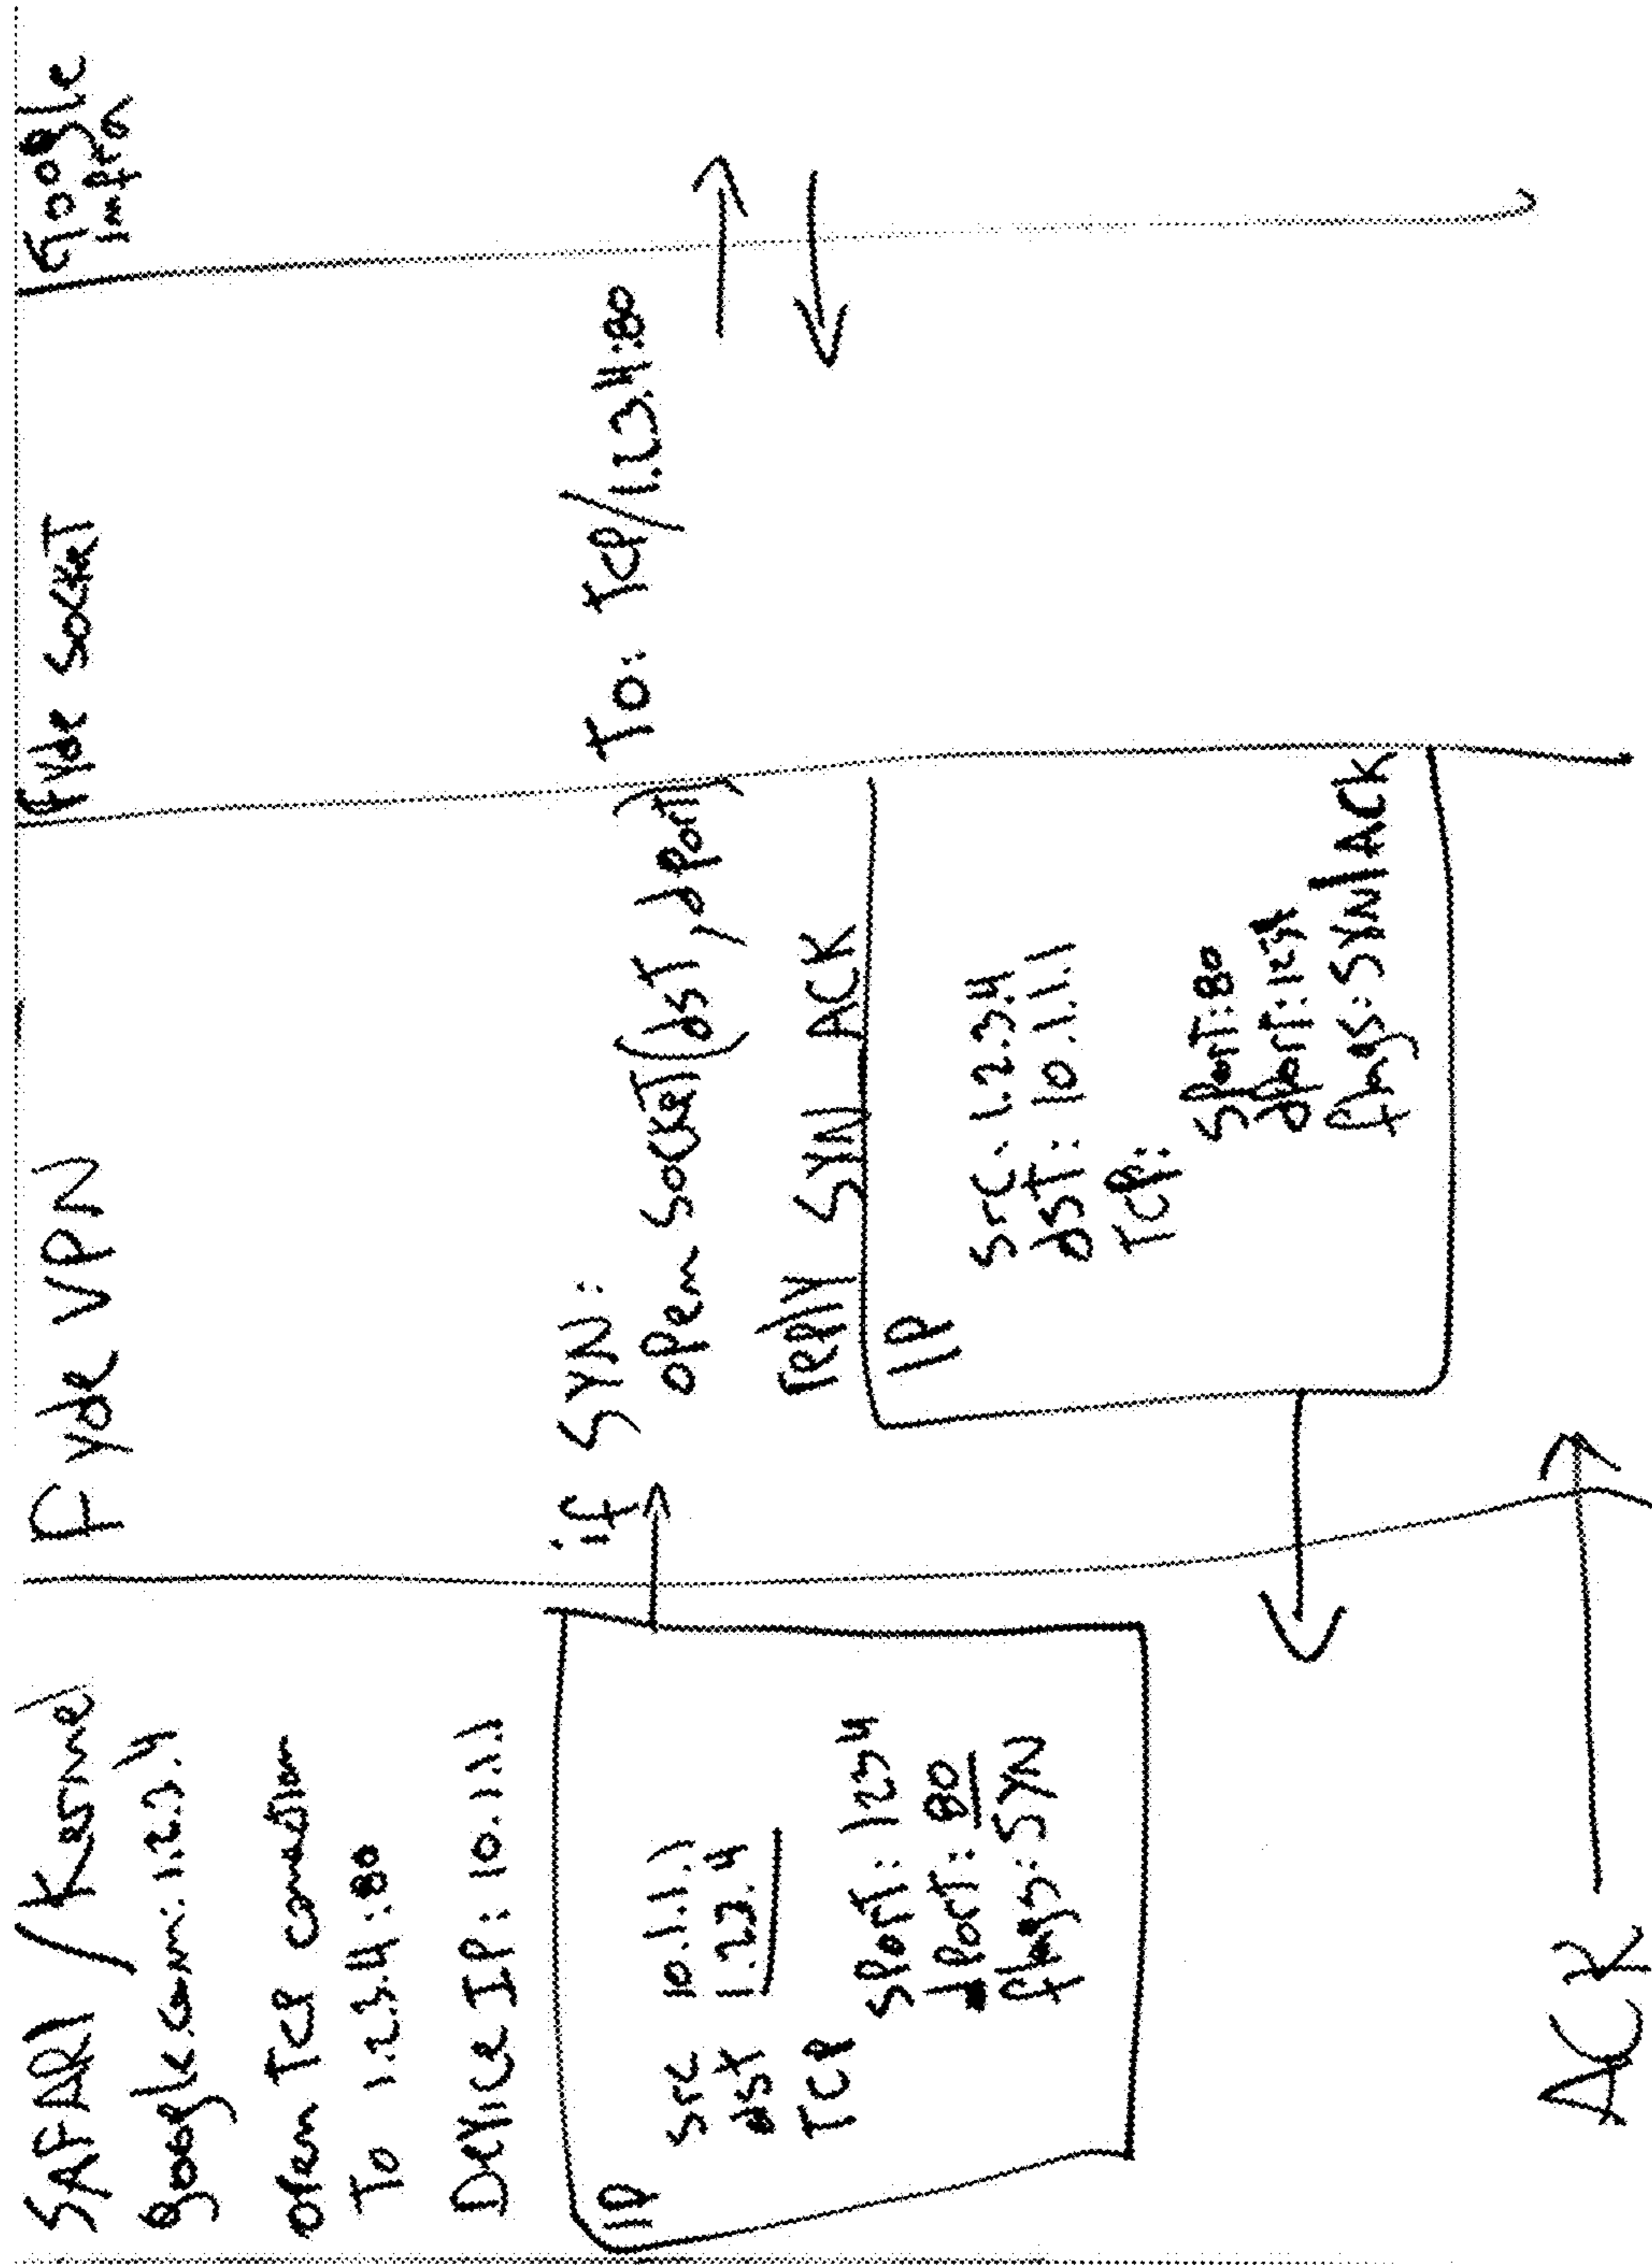 SAFARI / Kernel
google.com: 1.2.3.4
open TCP connection
To 1.2.3.4:80
Device IP: 10.1.1.1
IP
src 10.1.1.1
dst 1.2.3.4
TCP
sport: 1234
dport: 80
flags: SYN
ACK
Fyde VPN
if SYN:
open socket(dst, dport)
reply SYN ACK
IP
src: 1.2.3.4
dst: 10.1.1.1
TCP:
sport: 80
dport: 1234
flags: SYN|ACK
Fyde socket
To: TCP/1.2.3.4:80
google
infra